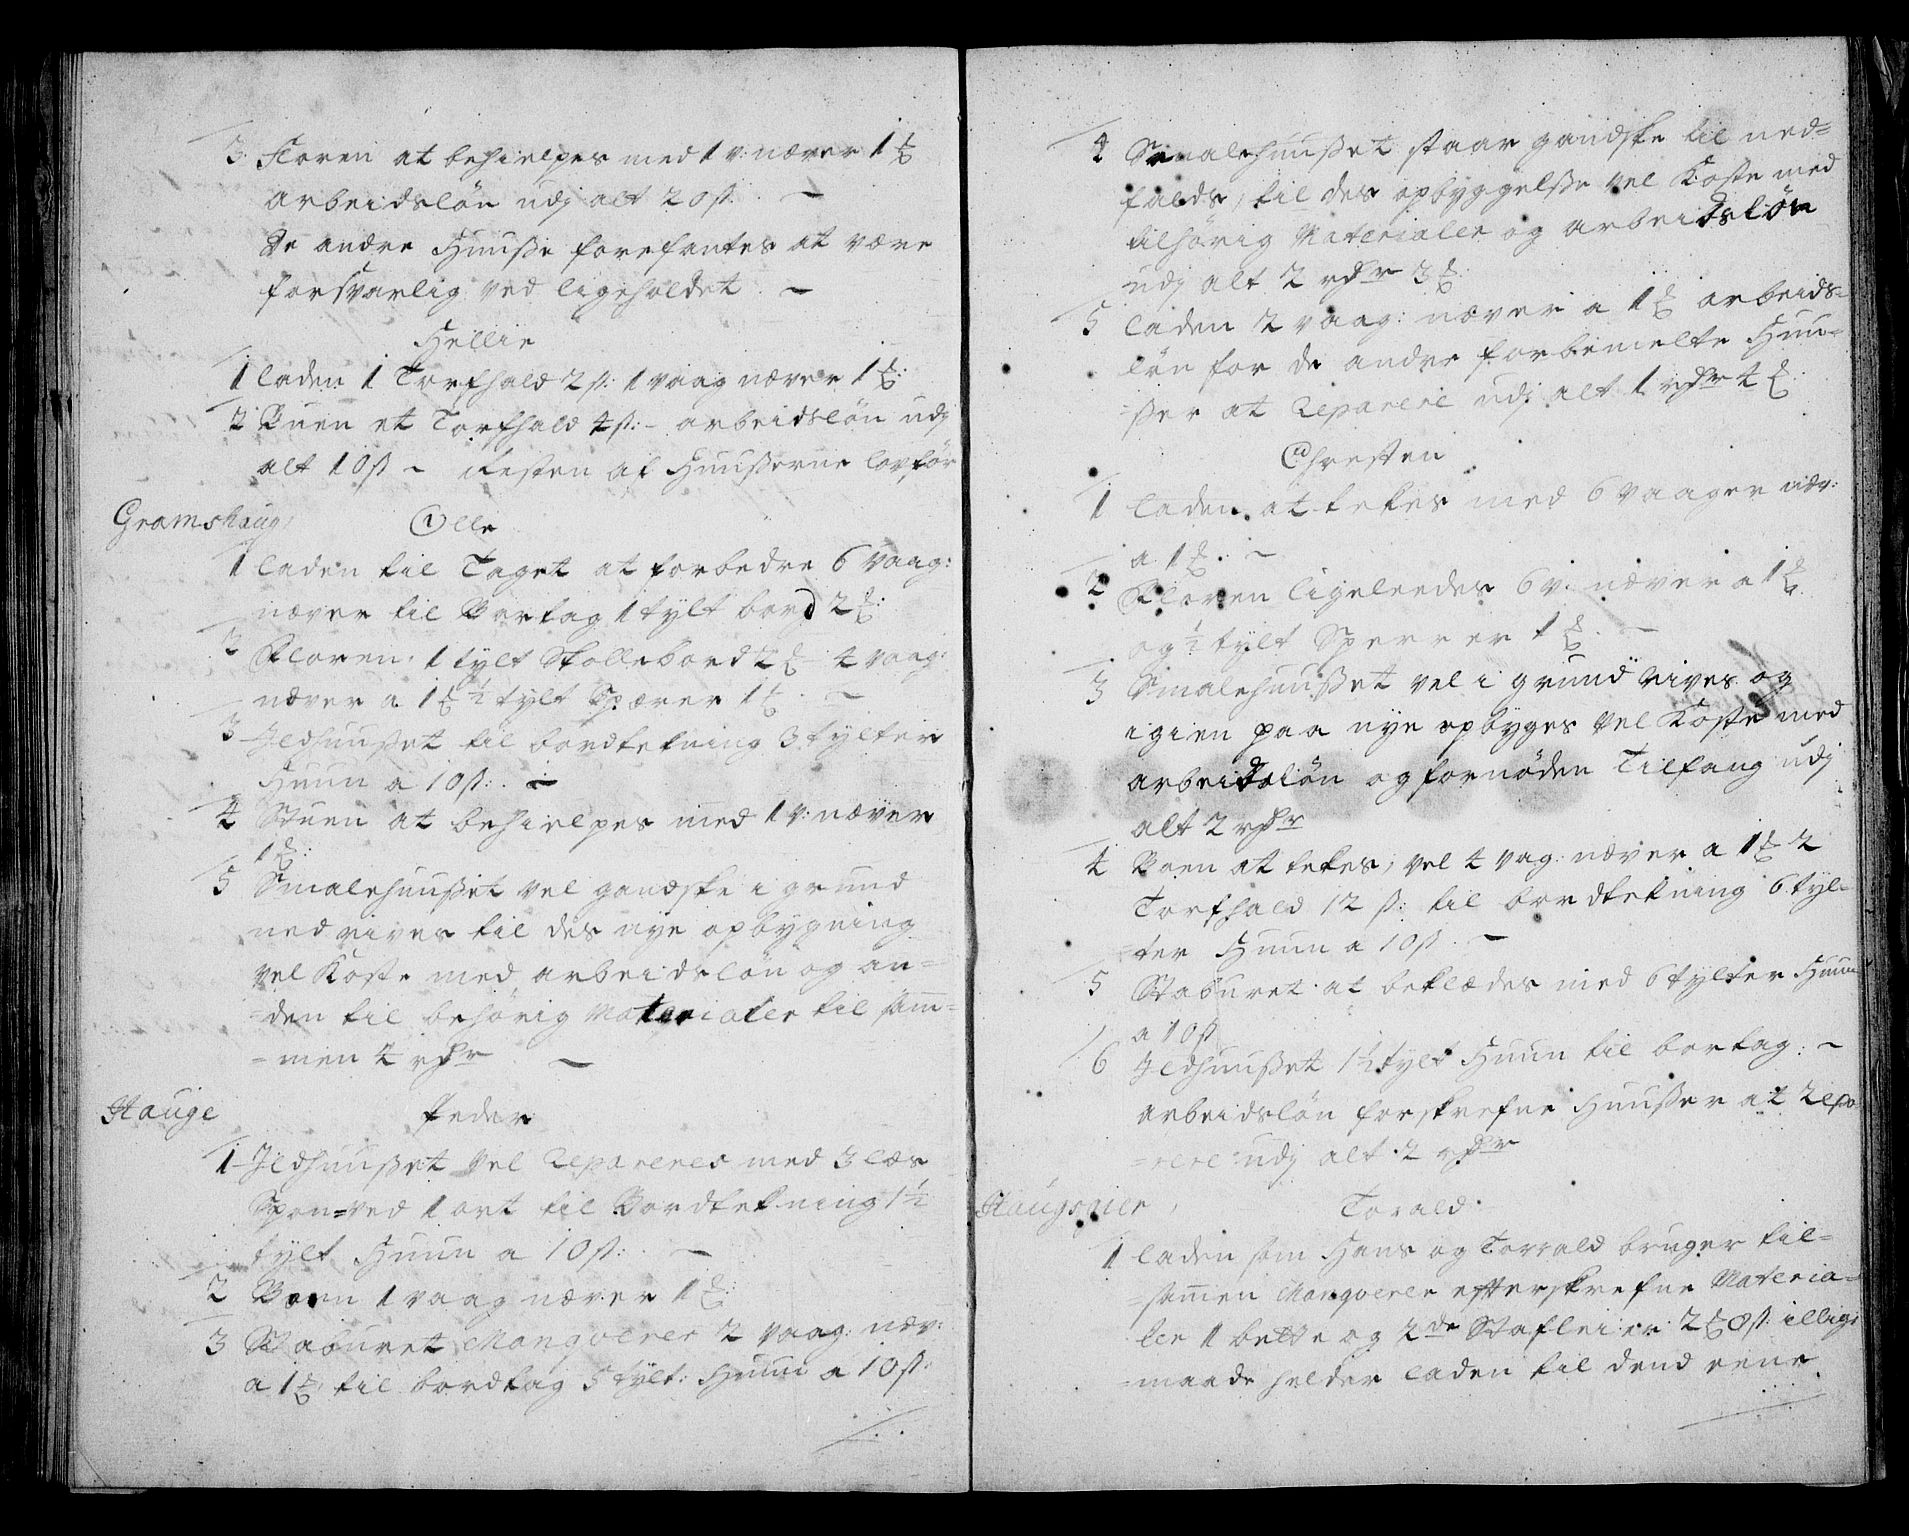 3 Floren at behielpes med 1 v: næver 1 ℔
arbeidslön udj alt 20 ß. –
De andre Huuße forefantes at være
forsvarlig ved ligeholdet. –
Hellie
1 laden 1 Torfhald 2 ß: 1 vaag næver 1 ℔:
2 Buen et Torfhald 4 ß: – arbeidslön udj
alt 10 ß – Resten af Huußerne lovför
Gramshaug Olle
1 laden til Taget at forbedre 6 vaag:
næver til Bortag 1 tylt bord 2 ℔:
2 Floren. 1 tylt Skollebord 2 ℔ – 4 vaag:
næver a 1 ℔ ½ tylt Spærer 1 ℔. –
3 Jldhuußet til bordtekning 3 tylter
Huun a 10 ß: –
4 Stuen at behielpes med 1 v: næver
1 ℔:
5 Smalehuußet vel gandske i grund
nedrives til des nye opbygning
vel Koste med arbeidslön og an=
=den til behörig Materialer til sam=
=men 4 rdr –
Hauge Peder
1 Jldhuußet vel Repareres med 3 læs
Spon=ved 1 ort til Bordtekning 1½
tylt Huun a 10 ß: –
2 Boen 1 vaag næver 1 ℔:
3 Staburet Manqverer 2 vaag: næv:
a 1 ℔, til bordtag 5 tylt: Huun a 10 ß:
4 Smalehuußet staar gandske til ned=
falds, til des opbyggelße vel Koste med
tilhörig Materialer og arbeidslön
udj alt 2 rdr 3 ℔:
5 laden 2 vaag: næver a 1 ℔ arbeids=
lön for de andre forbemelte Huu=
=ßer at Reparere udj alt 1 rdr 4 ℔:
Chresten
1 laden at tekes med 6 vaager næv:
a 1 ℔. –
2 Floren ligeleedes 6 v: næver a 1 ℔
og ½ tylt Sperrer 1 ℔. –
3 Smalehuußet vel i grund rives og
igien paa nye opbyges vel Koste med
arbeidslön og fornöden Tilfang udj
alt 2 rdr
4 Boen at tekes, vel 4 vag: næver a 1 ℔ 2
Torfhald 12 ß: til bordtekning 6 tyl=
=ter Huun a 10 ß. –
5 Staburet at beklædes med 6 tylter Huun
a 10 ß
6 Jldhuußet 1½ tylt Huun til bortag: –
arbeidslön forskrefne Huußer at Repa
=rere udj alt 2 rdr
Torald
1 laden som Hans og Torrald bruger til=
=sammen Manqverer efterskrefne Materia=
ler 1 bette og 2de Stafleier 2 ℔ 8 ß: illige
=maade helder laden til dend eene